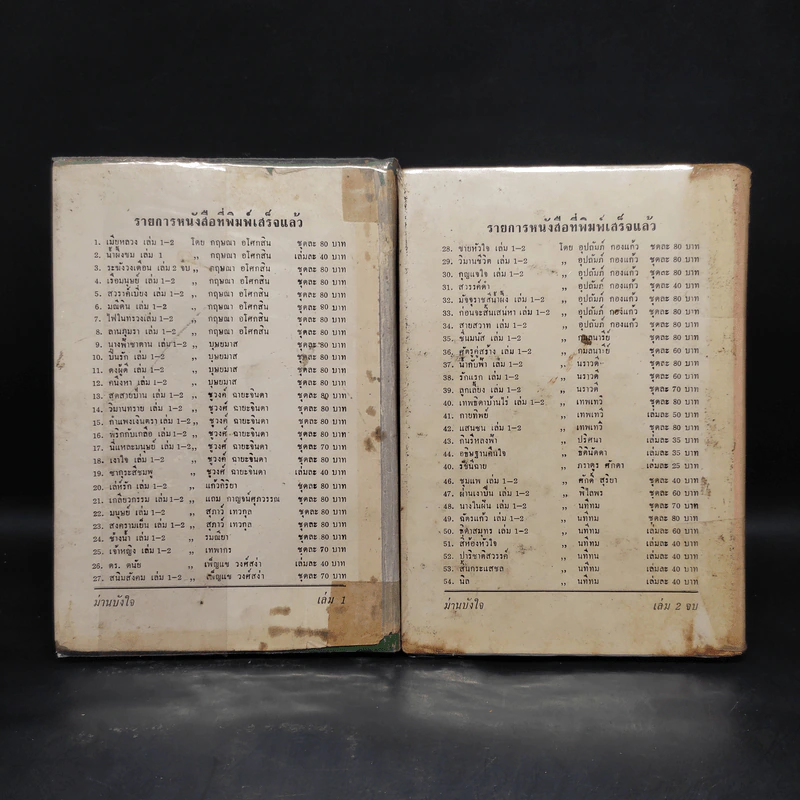 รายการหนังสือที่พิมพ์เสร็จแล้ว
1. เมียหลวง เล่ม 1-2 โดย กฤษณา อโศกสิน ชุดละ 80 บาท
2. น้ำผึ้งขม เล่ม 1 ,, กฤษณา อโศกสิน เล่มละ 40 บาท
3. ระฆังวงเดือน เล่ม 2 จบ ,, กฤษณา อโศกสิน ชุดละ 80 บาท
4. เรือมนุษย์ เล่ม 1-2 ,, กฤษณา อโศกสิน ชุดละ 80 บาท
5. สวรรค์เบี่ยง เล่ม 1-2 ,, กฤษณา อโศกสิน ชุดละ 80 บาท
6. มณีดิน เล่ม 1-2 ,, กฤษณา อโศกสิน ชุดละ 80 บาท
7. ไฟในทรวง เล่ม 1-2 ,, กฤษณา อโศกสิน ชุดละ 80 บาท
8. ลานภุมรา เล่ม 1-2 ,, กฤษณา อโศกสิน ชุดละ 80 บาท
9. นางฟ้าซาตาน เล่ม 1-2 ,, บุษยมาส ชุดละ 80 บาท
10. บันรัก เล่ม 1-2 ,, บุษยมาส ชุดละ 80 บาท
11. ดงผู้ดี เล่ม 1-2 ,, บุษยมาส ชุดละ 80 บาท
12. คนึงหา เล่ม 1-2 ,, บุษยมาส ชุดละ 80 บาท
13. สุดสายป่าน เล่ม 1-2 ,, ชูวงศ์ ฉายะจินดา ชุดละ 80 บาท
14. วิมานทราย เล่ม 1-2 ,, ชูวงศ์ ฉายะจินดา ชุดละ 80 บาท
15. กำแพงเงินตรา เล่ม 1-2 ,, ชูวงศ์ ฉายะจินดา ชุดละ 80 บาท
16. พริกกับเกลือ เล่ม 1-2 ,, ชูวงศ์ ฉายะจินดา ชุดละ 80 บาท
17. นี่แหละมนุษย์ เล่ม 1-2 ,, ชูวงศ์ ฉายะจินดา ชุดละ 70 บาท
18. เงาใจ เล่ม 1-2 ,, ชูวงศ์ ฉายะจินดา ชุดละ 80 บาท
19. ,, ชูวงศ์ ฉายะจินดา เล่มละ 40 บาท
20. เล่ห์รัก เล่ม 1-2 ,, ชุดละ 80 บาท
21. เกลียวกรรม เล่ม 1-2 ,, แถม กาญจน์ศุภวรรณ ชุดละ 80 บาท
22. มนุษย์ เล่ม 1-2 ,, สุภาว์ เทวกุล ชุดละ 80 บาท
23. สงครามเย็น เล่ม 1-2 ,, สุภาว์ เทวกุล ชุดละ 80 บาท
24. ช้างน้ำ เล่ม 1-2 ,, ชุดละ 80 บาท
25. เจ้าหญิง เล่ม 1-2 ,, เทพากร ชุดละ 70 บาท
26. ดร. ดนัย ,, เพ็ญแข วงศ์สง่า เล่มละ 40 บาท
27. สนิมสังคม เล่ม 1-2 ,, เพ็ญแข วงศ์สง่า ชุดละ 70 บาท
ม่านบังใจ เล่ม 1
รายการหนังสือที่พิมพ์เสร็จแล้ว
28. ชายหัวใจ เล่ม 1-2 โดย อุปถัมภ์ กองแก้ว ชุดละ 80 บาท
29. วิมานชีวิต เล่ม 1-2 ,, อุปถัมภ์ กองแก้ว ชุดละ 80 บาท
30. กุญแจใจ เล่ม 1-2 ,, อุปถัมภ์ กองแก้ว ชุดละ 80 บาท
31. สวรรค์ดำ ,, อุปถัมภ์ กองแก้ว ชุดละ 40 บาท
32. มัจจุราชสีน้ำผึ้ง เล่ม 1-2 ,, อุปถัมภ์ กองแก้ว ชุดละ 80 บาท
33. ก่อนจะสิ้นเสน่หา เล่ม 1-2 ,, อุปถัมภ์ กองแก้ว ชุดละ 80 บาท
34. สายสวาท เล่ม 1-2 ,, อุปถัมภ์ กองแก้ว ชุดละ 80 บาท
35. เล่ม 1-2 ,, กมลนารีย์ ชุดละ 80 บาท
36. ศัตรูคู่สร้าง เล่ม 1-2 ,, ชุดละ 60 บาท
37. น้ำกับฟ้า เล่ม 1-2 ,, นราวดี ชุดละ 80 บาท
38. รักแรก เล่ม 1-2 ,, นราวดี ชุดละ 60 บาท
39. ลูกเลี้ยง เล่ม 1-2 ,, นราวดี ชุดละ 70 บาท
40. เทพธิดาบ้านไร่ เล่ม 1-2 ,, เทพเทวี ชุดละ 80 บาท
41. กายทิพย์ ,, เทพเทวี เล่มละ 50 บาท
42. แสนซน เล่ม 1-2 ,, เทพเทวี ชุดละ 80 บาท
43. ,, ปริศนา เล่มละ 35 บาท
44. อธิษฐานคืนใจ ,, ธิตินัดดา เล่มละ 35 บาท
ฉาย ,, ภราดร ศักดา เล่มละ 25 บาท
46. ชุมแพ เล่ม 1-2 ,, ศักดิ์ สุริยา ชุดละ 40 บาท
47. เล่ม 1-2 ,, พิไลพร ชุดละ 60 บาท
48. นางในฝัน เล่ม 1-2 ,, นทีทม ชุดละ 70 บาท
49. ฉัตรแก้ว เล่ม 1-2 ,, นทีทม ชุดละ 80 บาท
50. ธิดาสมุทร เล่ม 1-2 ,, นทีทม ชุดละ 80 บาท
51. สี่ห้องหัวใจ ,, นทีทม เล่มละ 40 บาท
52. ปาริชาติสวรรค์ ,, นทีทม เล่มละ 40 บาท
53. สิ้นกระแสชล ,, นทีทม เล่มละ 40 บาท
54. นิล ,, นทีทม เล่มละ 40 บาท
ม่านบังใจ เล่ม 2 จบ